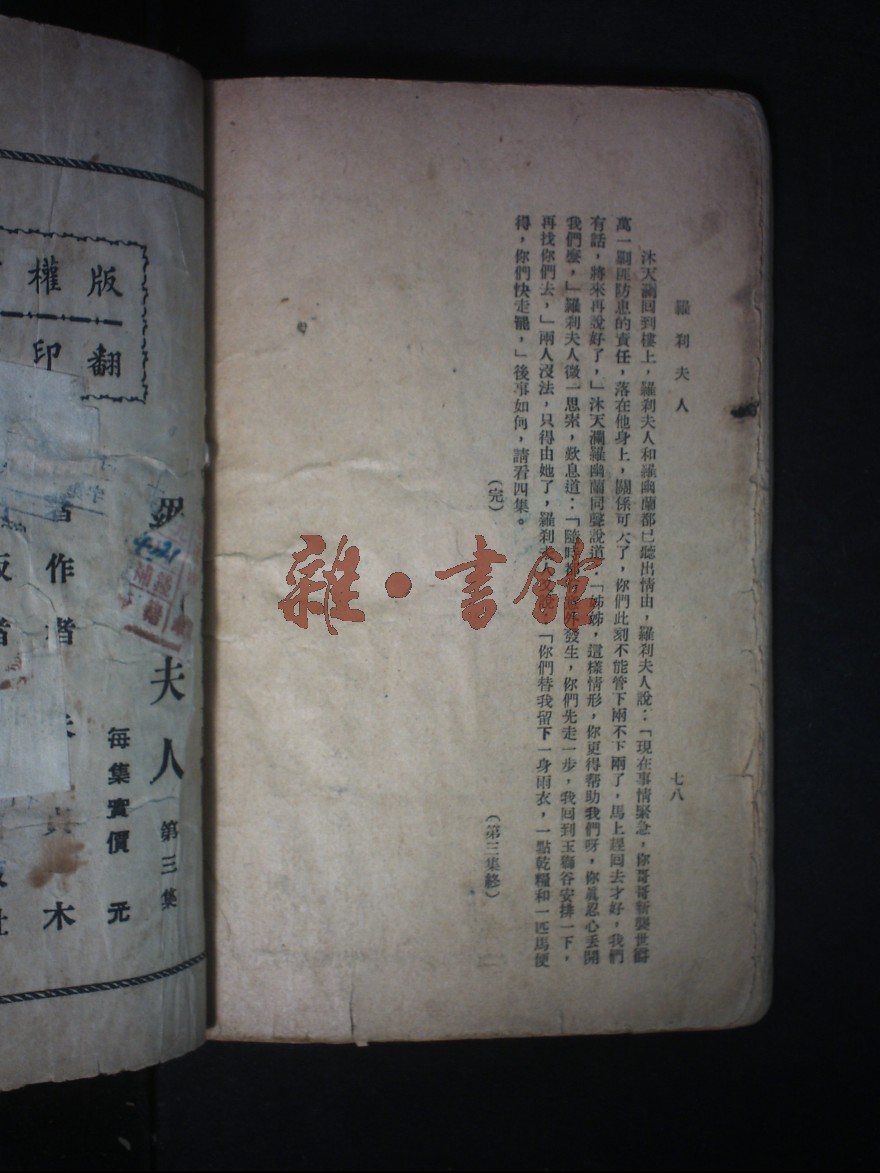 羅刹夫人
七八
沐天瀾回到樓上，羅刹夫人和羅幽蘭都已聽出情由，羅刹夫人說：「現在事情緊急，你哥哥新襲世爵
萬一剿匪防患的責任，落在他身上，關係可大了，你們此刻不能管下雨不下雨了，馬上趕回去才好，我們
有話，將來再說好了，」沐天瀾羅幽蘭同聲說道：「姊姊，這樣情形，你更得帮助我們呀，你眞忍心丟開
我們麼，」羅刹夫人微一思索，歎息道：「隨時發生，你們先走一步，我回到玉獅谷安排一下，
再找你們去，」兩人沒法，只得由她了，羅刹夫「你們替我留下一身雨衣，一點乾糧和一匹馬便
得，你們快走罷，」後事如何，請看四集。
（完）
（第三集終）
雜·書館
版權
翻印
夫人 第三集
每集實價 元
著作者
木